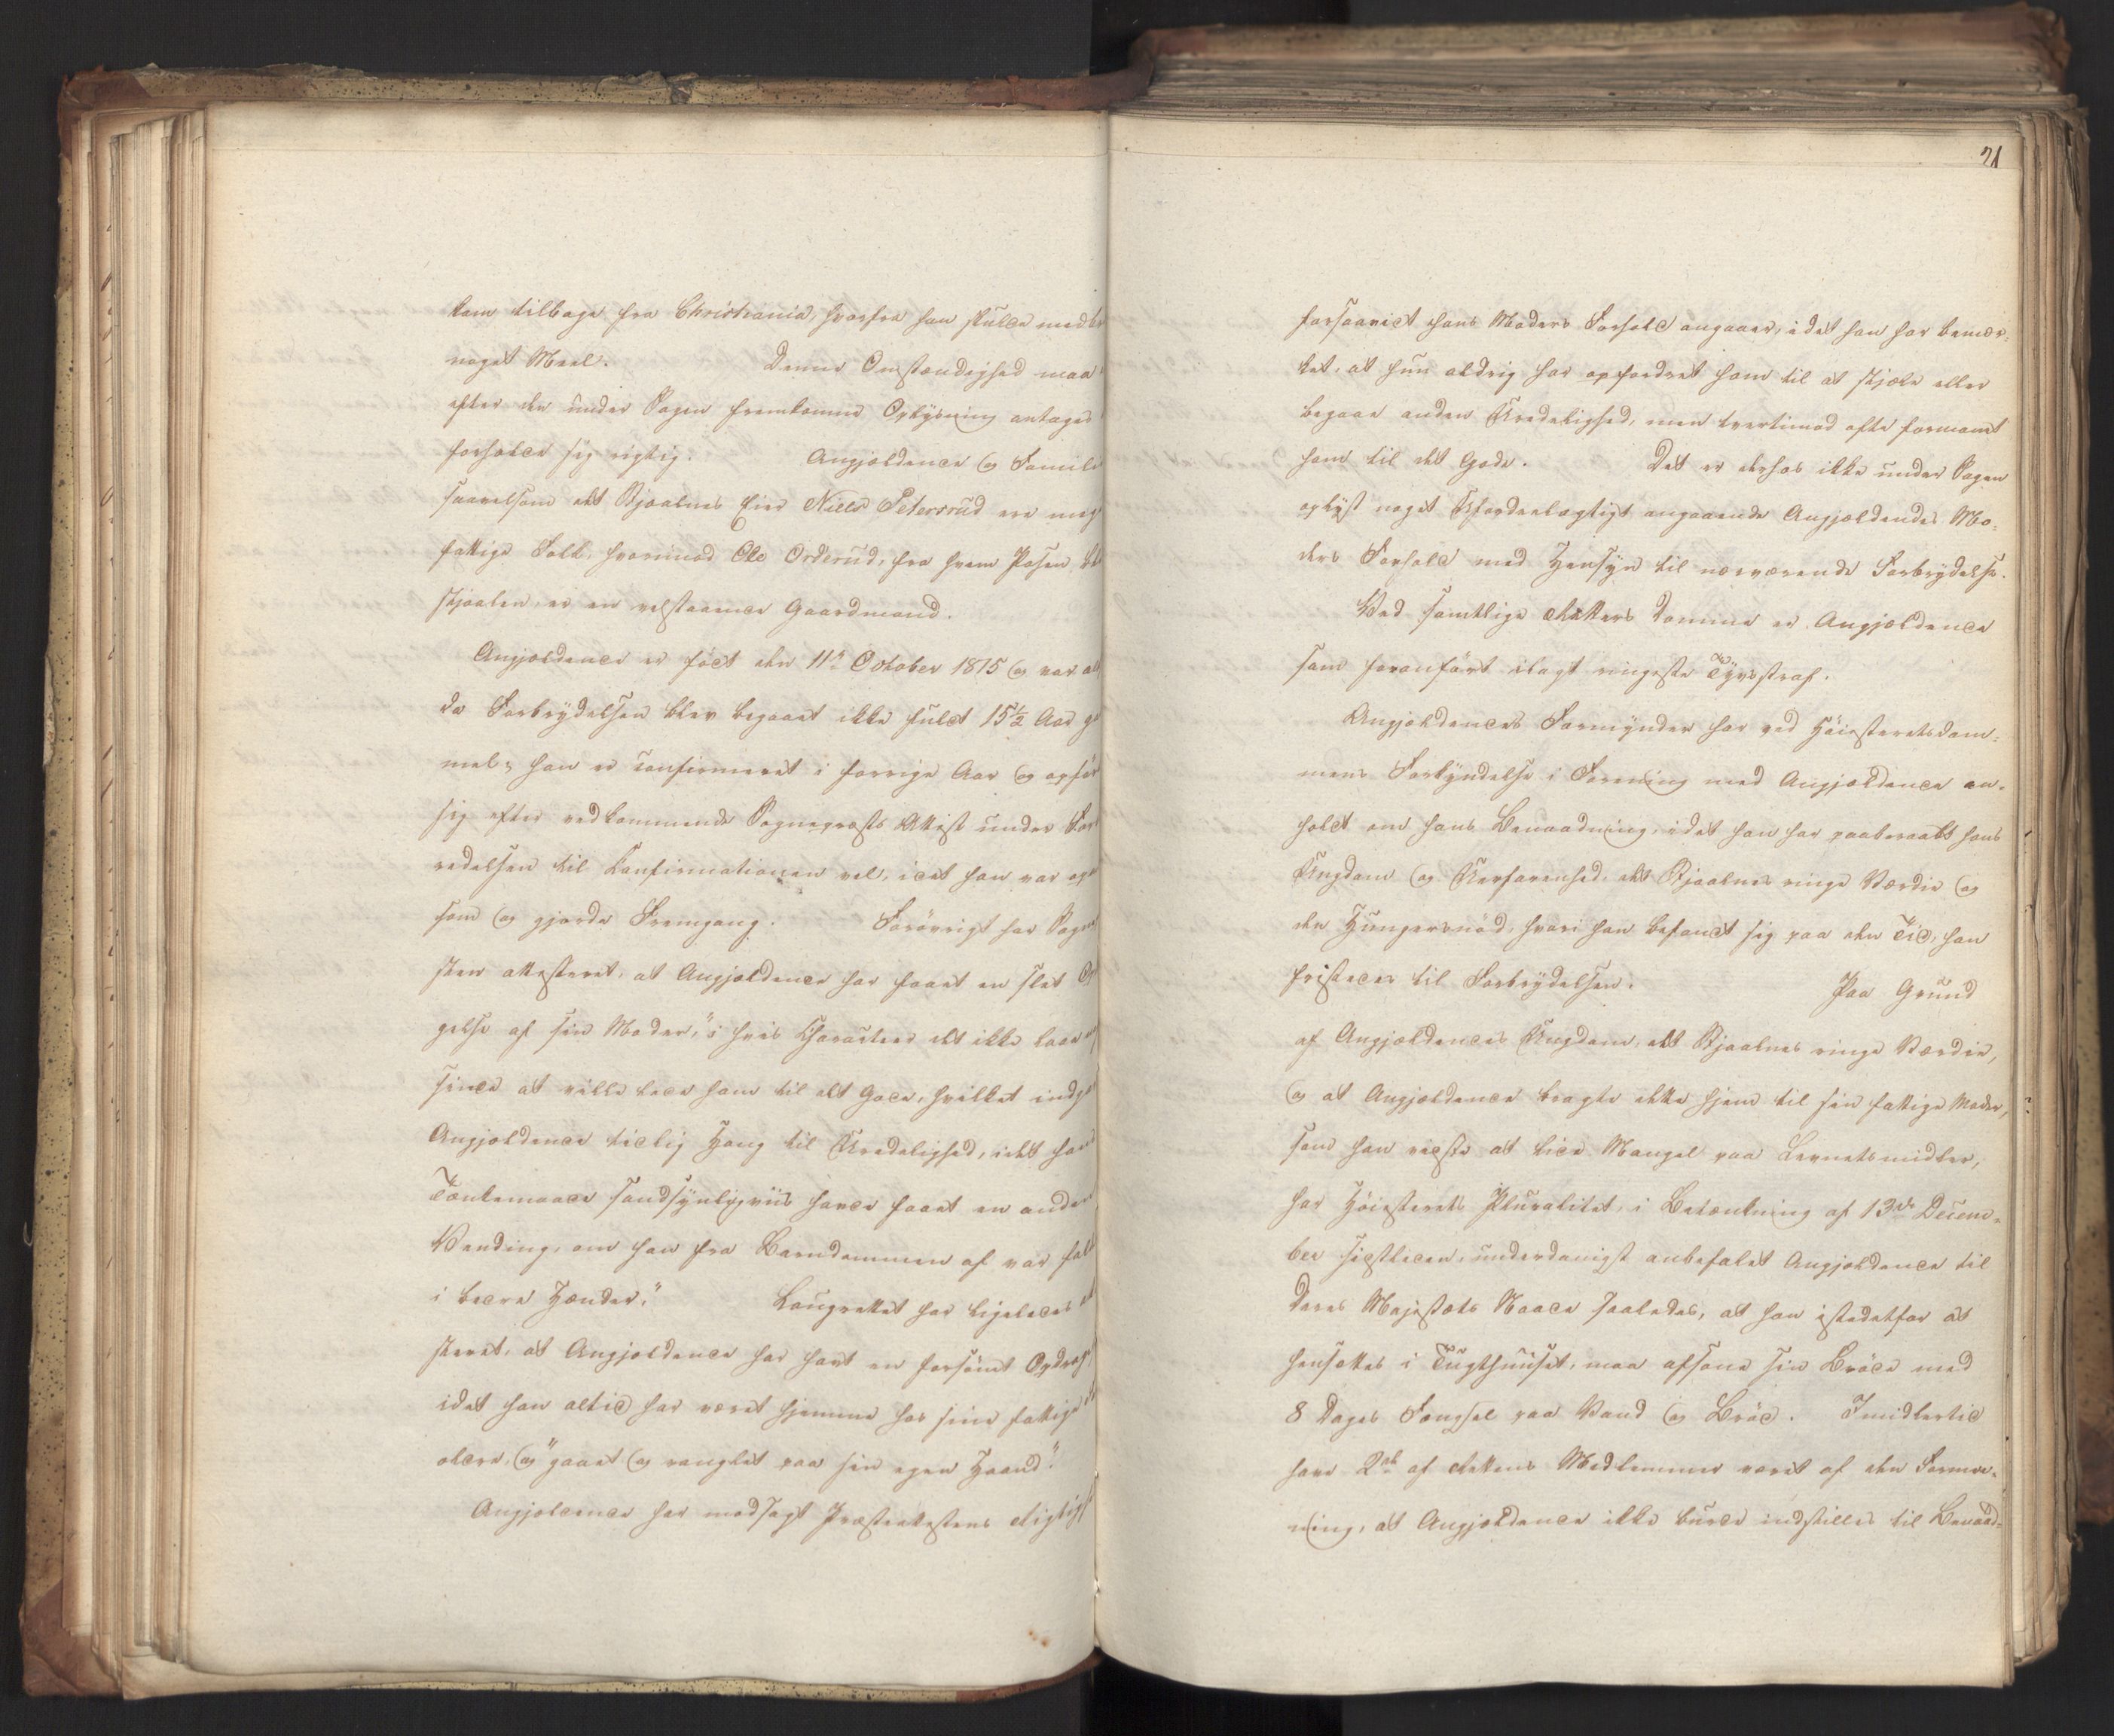 kom tilbage fra Christiania, hvorfra han skulde medbr
noget Meel. Denne Omstændighed maa
efter den under Sagen fremkomne Oplysning antages
forholde sig rigtig. Angjældende og Famile
saavelsom det Stjaalnes Eier Niels Petersrud ere meg
fattige Folk, hvorimod Ole Orderud, fra hvem Posen bl
stjaalen, er en velstaaende Gaardmand.
Angjældende er født den 11te October 1815 og var alt
da Forbrydelsen blev begaaet ikke fuldt 15½ Aar ga
mel; han er confirmeret i forrige Aar og opfør
sig efter vedkommende Sognepræsts Attest under Forb
redelsen til Confirmationen vel, idet han var op
som og gjorde Fremgang. Forøvrigt har Sogne
sten attesteret, at Angjældende har faaet en slet Op
gelse af sin Moder, "i hvis Charakteer det ikke laae
sinde at ville lede ham til det Gode, hvilket indga
Angjældende tidlig Hang til Uredelighed, idet hans
Tænkemaade sandsynligviis havde faaet en anden
Vending, om han fra Barndommen af var fal
i bedre Hænder." Laugrettet har ligeledes at
steret, at Angjældende har havt en forsømt Opdrag
idet han altid har været hjemme hos sine fattige
ældre, og "gaaet og ranglet paa sin egen Haand".
Angjældende har modsagt Præsteattestens Rigtigh
21
forsaavidt hans Moders Forhold angaaer, idet han har bemær-
ket, at hun aldrig har opfordret ham til at stjæle eller
begaae anden Uredelighed, men tvertimod ofte formanet
ham til det Gode. Det er derhos ikke under Sagen
oplyst noget Ufordeelagtigt angaaende Angjældendes Mo-
ders Forhold med Hensyn til nærværende Forbrydelse.
Ved samtlige Retters Domme er Angjældende
som foranført ilagt ringeste Tyvsstraf.
Angjældendes Formynder har ved Høiesteretsdom-
mens Forkyndelse i Forening med Angjældende an-
holdt om hans Benaadning, idet han har paaberaabt hans
Ungdom og Uerfarenhed, det Stjaalnes ringe Værdie og
den Hungersnød, hvori han befandt sig paa den Tid, han
fristedes til Forbrydelsen. Paa Grund
af Angjældendes Ungdom, det Stjaalnes ringe Værdie,
og at Angjældende bragte dette hjem til sin fattige Moder,
som han vidste at lide Mangel paa Levnetsmidler,
har Høiesterets Pluralitet, i Betænkning af 13de Decem-
ber sidstleden, underdanigst anbefalet Angjældende til
Deres Majestæts Naade saaledes, at han istedetfor at
hensættes i Tugthuuset, maa afsone sin Brøde med
8 Dages Fængsel paa Vand og Brød. Imidlertid
have 2de af Rettens Medlemmer været af den Forme-
ning, at Angjældende ikke burde indstilles til Benaad-